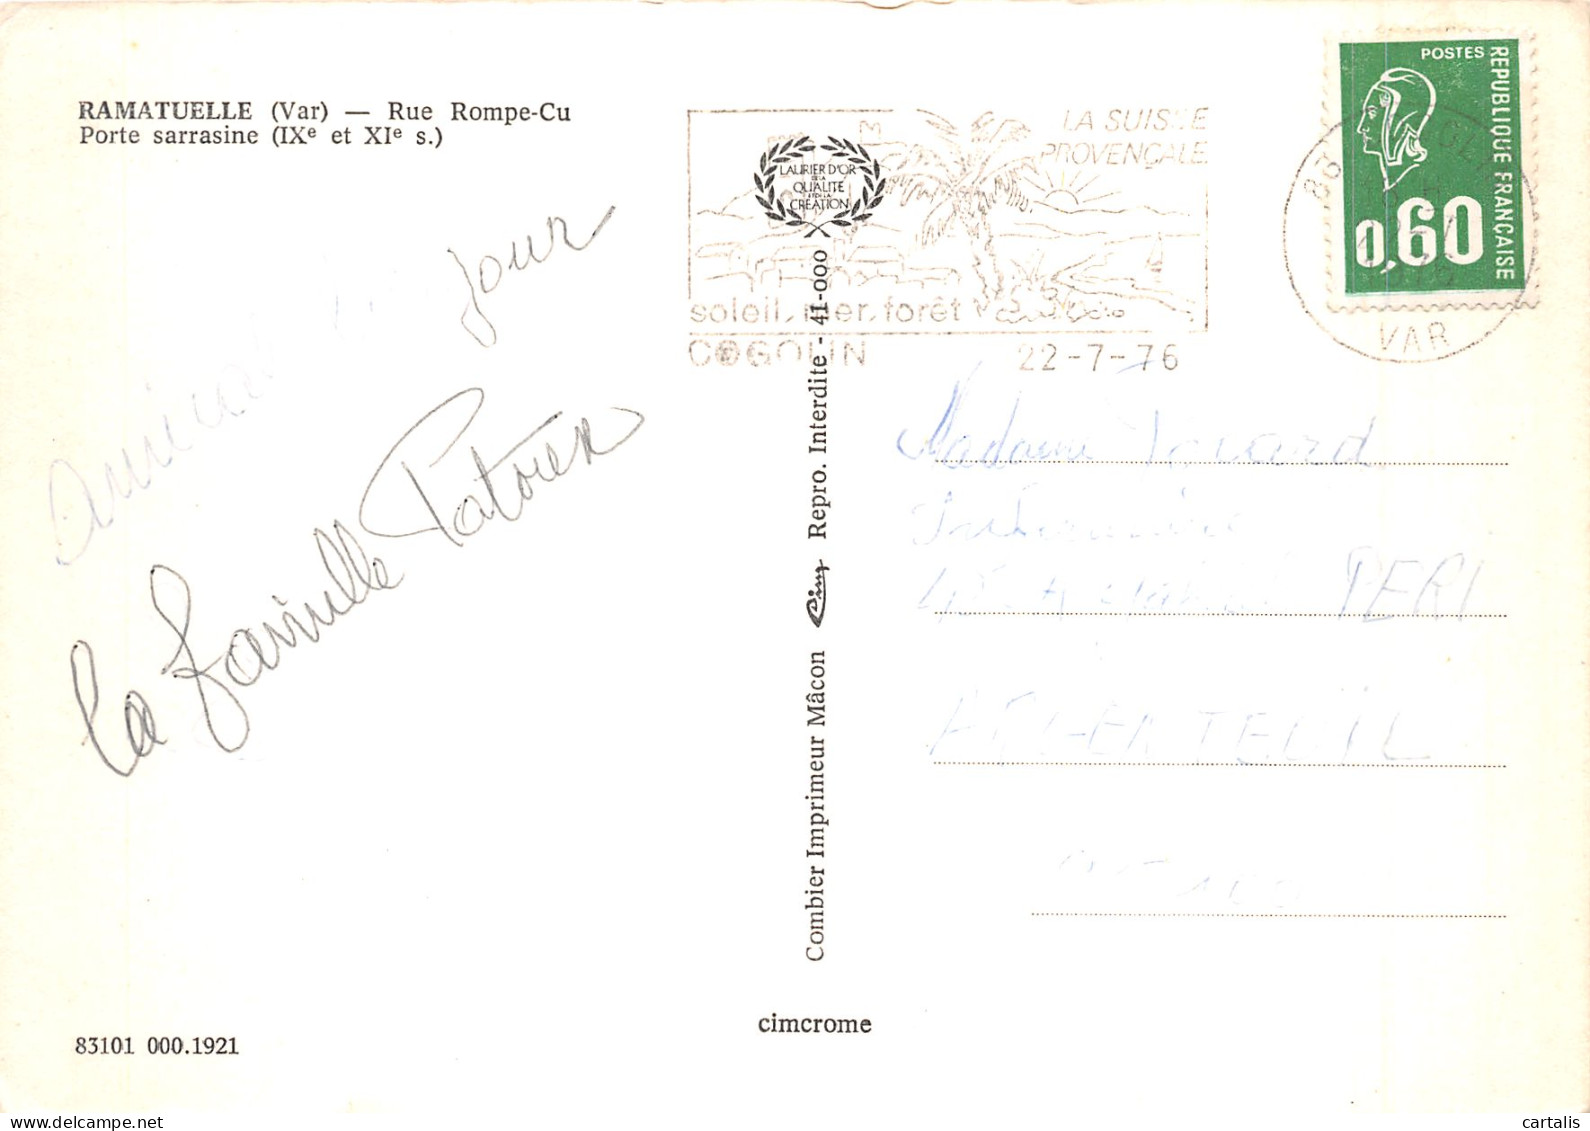 RAMATUELLE (Var) — Rue Rompe-Cu
Porte sarrasine (IXe et XIe s.)
jour
La famille
LAURIER D'OR
DE LA
QUALITÉ
ET DE LA
CRÉATION
LA SUISSE
PROVENÇALE
soleil, mer, forêt
COGOLIN 22-7-76
POSTES
REPUBLIQUE FRANÇAISE
0,60
83
VAR
Combier Imprimeur Mâcon Cim Repro. Interdite - 41-000
Madame
PERI
ARGENTEUIL
cimcrome
83101 000.1921
delcampe.net
cartalis